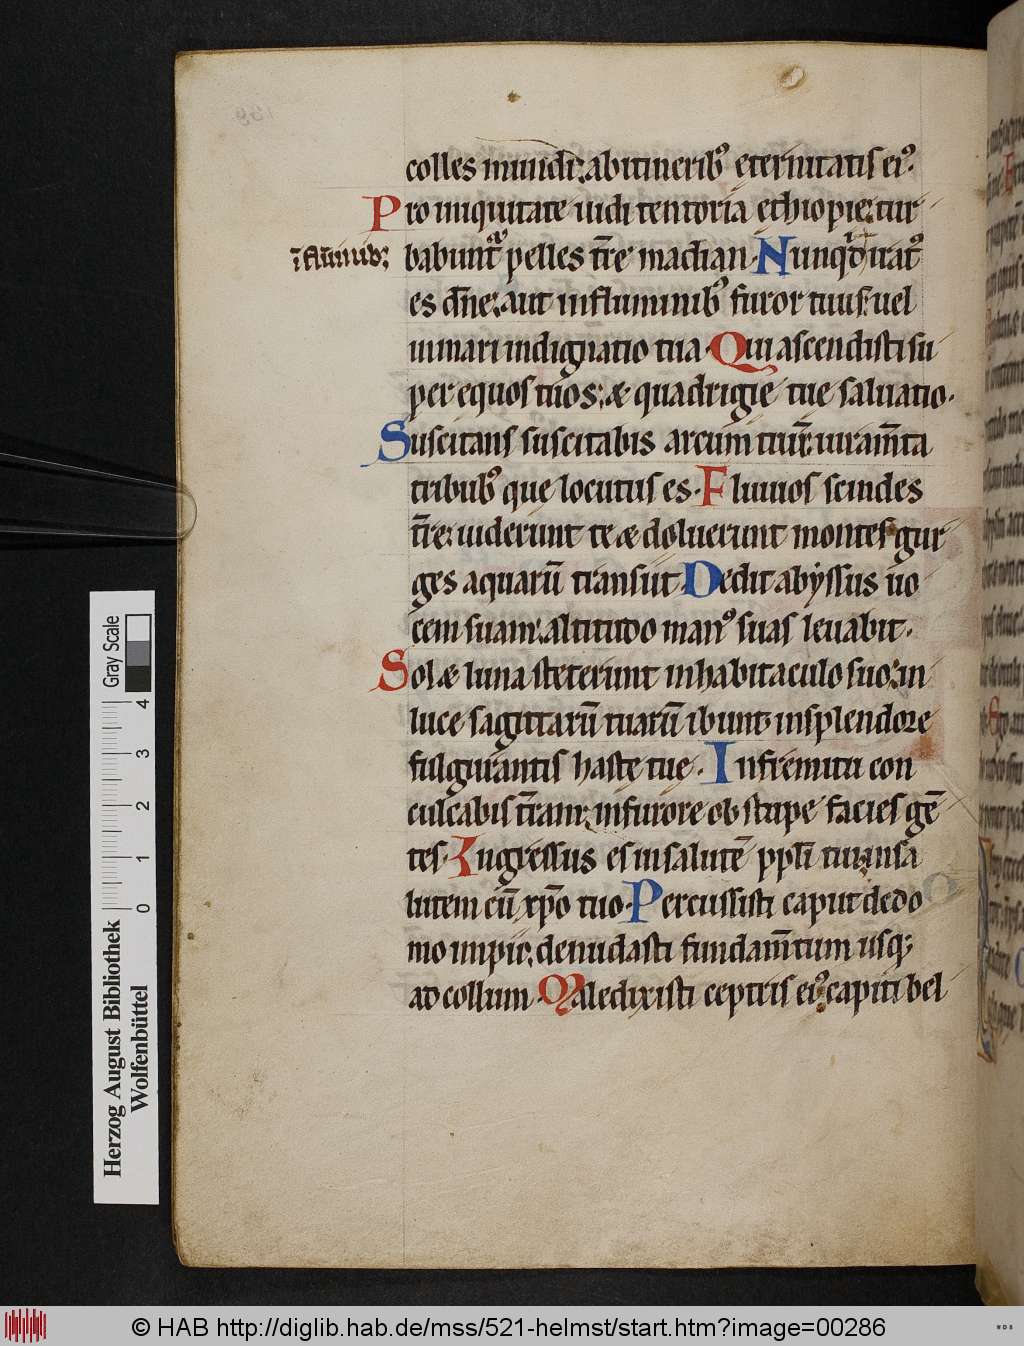 colles mundi: ab itineribꝰ eternitatis eiꝰ.
Pro iniquitate uidi tentoria ethiopie: tur
babunt᷑ pelles t̄re madian. Nunqͥd iratꝰ
in fluminibꝫ
es dn̄e: aut in fluminibꝰ furor tuus: uel
in mari indignatio tua. Qui ascendisti su
per equos tuos: & quadrigie tue saluatio.
Suscitans suscitabis arcum tuū: iuram̄ta
tribubꝰ que locutus es. Fluuios scindes
t̄re: uiderunt te & doluerunt montes gur
ges aquarū transiit. Dedit abyssus uo
cem suam: altitudo manꝰ suas leuabit.
Sol & luna steterunt in habitaculo suo: in
luce sagittarū tuarū ibunt in splendore
fulgurantis hastę tuę. In fremitu con
culcabis t̄ram: in furore obstupe facies gē
tes. Ingressus es in salutē ppl̄i tui: in sa
lutem cū xp̄o tuo. Percussisti caput de do
mo impii: denudasti fundam̄tum usqꝫ
ad collum. Maledixisti ceptris eiꝰ: capiti bel
Herzog August Bibliothek
Wolfenbüttel
Gray Scale
0 1 2 3 4
© HAB http://diglib.hab.de/mss/521-helmst/start.htm?image=00286